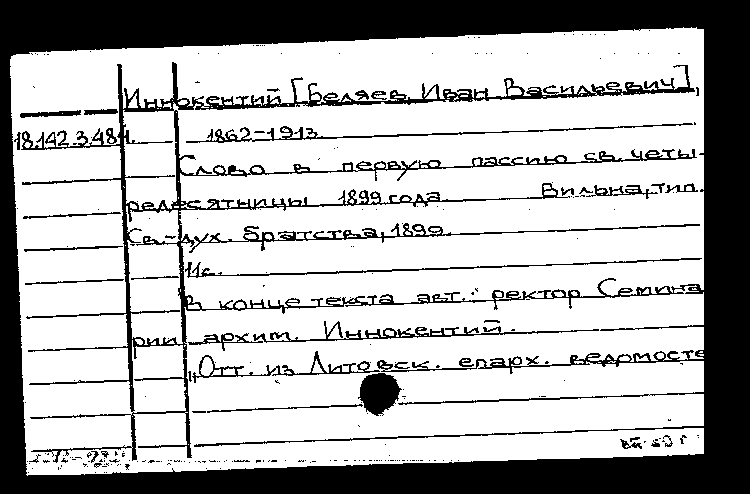 Иннокентий [Беляев, Иван Васильевич],
18.142.3.484. 1862-1913.
Слово в первую пассию св. четы-
редесятницы 1899 года. Вильна, тип.
Св.-дух. братства, 1899.
11с.
В конце текста авт.: ректор Семина
рии архим. Иннокентий.
"Отт. из Литовск. епарх. ведомосте